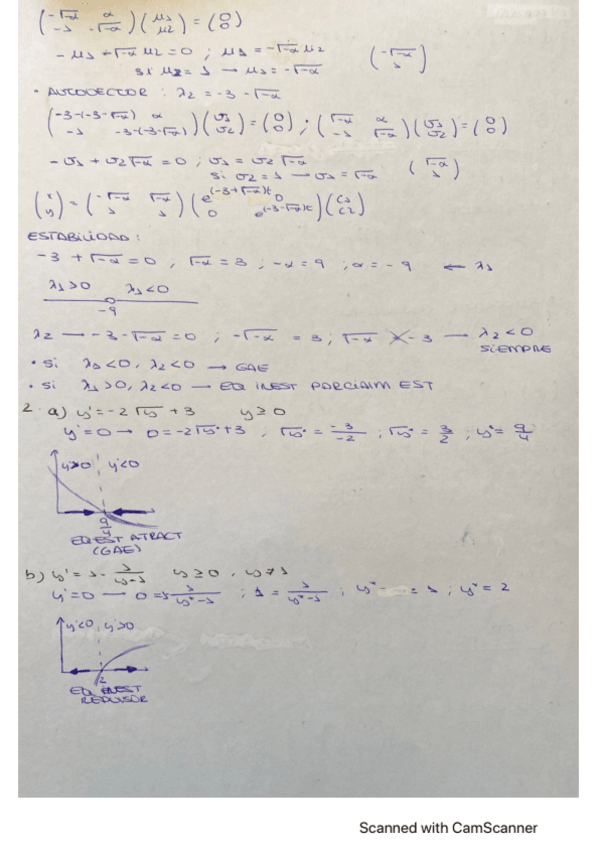 (-√-α α
-1 -√-α)(μ1
μ2) = (0
0)
- μ1 - √-α μ2 = 0 ; μ1 = -√-α μ2
si μ2 = 1 → μ1 = -√-α (-√-α
1)
• AUTOVECTOR : λ2 = -3 - √-α
(-3-(-3-√-α) α
-1 -3-(-3-√-α))(v1
v2) = (0
0) ; (√-α α
-1 √-α)(v1
v2) = (0
0)
- v1 + v2 √-α = 0 ; v1 = v2 √-α
si v2 = 1 → v1 = √-α (√-α
1)
(x
y) = (-√-α √-α
1 1)(e^(-3+√-α)t 0
0 e^(-3-√-α)t)(C1
C2)
ESTABILIDAD :
-3 + √-α = 0 , √-α = 3 ; -α = 9 ; α = -9 ← λ1
λ1>0 λ1<0
-9
λ2 → -3 - √-α = 0 ; -√-α = 3 ; √-α X -3 → λ2 < 0
SIEMPRE
• si λ1<0, λ2<0 → GAE
• si λ1>0, λ2<0 → EQ INEST PARCIALM EST
2. a) y' = -2√y + 3 y ≥ 0
y' = 0 → 0 = -2√y* + 3 , √y* = -3/-2 ; √y* = 3/2 ; y* = 9/4
y'>0 y'<0
9/4
EQ EST ATRACT
(GAE)
b) y' = 1 - 1/y-1 y ≥ 0 , y ≠ 1
y' = 0 → 0 = 1 - 1/y*-1 ; 1 = 1/y*-1 ; = 1 ; y* = 2
y'<0 y'>0
2
EQ INEST
REPULSOR
Scanned with CamScanner